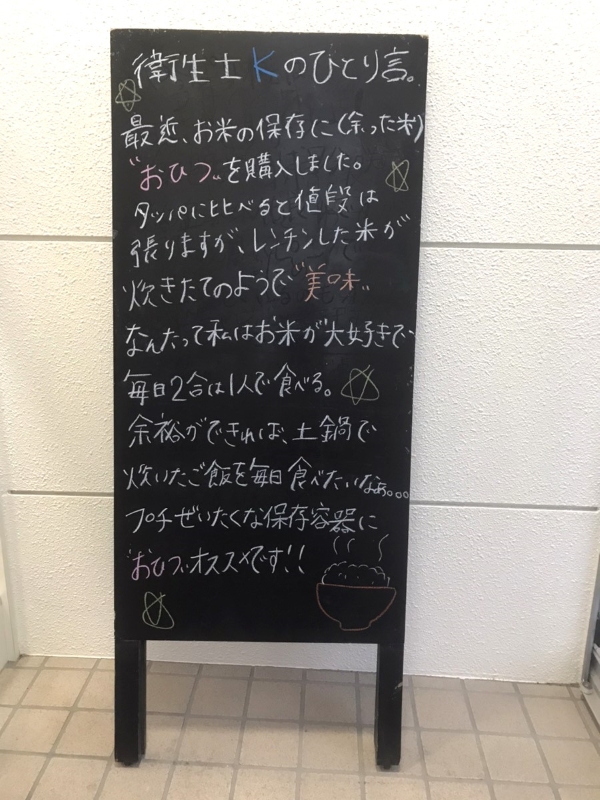 衛生士Kのひとり言。
最近、お米の保存に(余った米)
"おひつ"を購入しました。
タッパに比べると値段は
張りますが、レンチンした米が
炊きたてのようで"美味"
なんたって私はお米が大好きで、
毎日2合は1人で食べる。
余裕ができれば、土鍋で
炊いたご飯を毎日食べたいなぁ...
プチぜいたくな保存容器に
"おひつ"オススメです!!